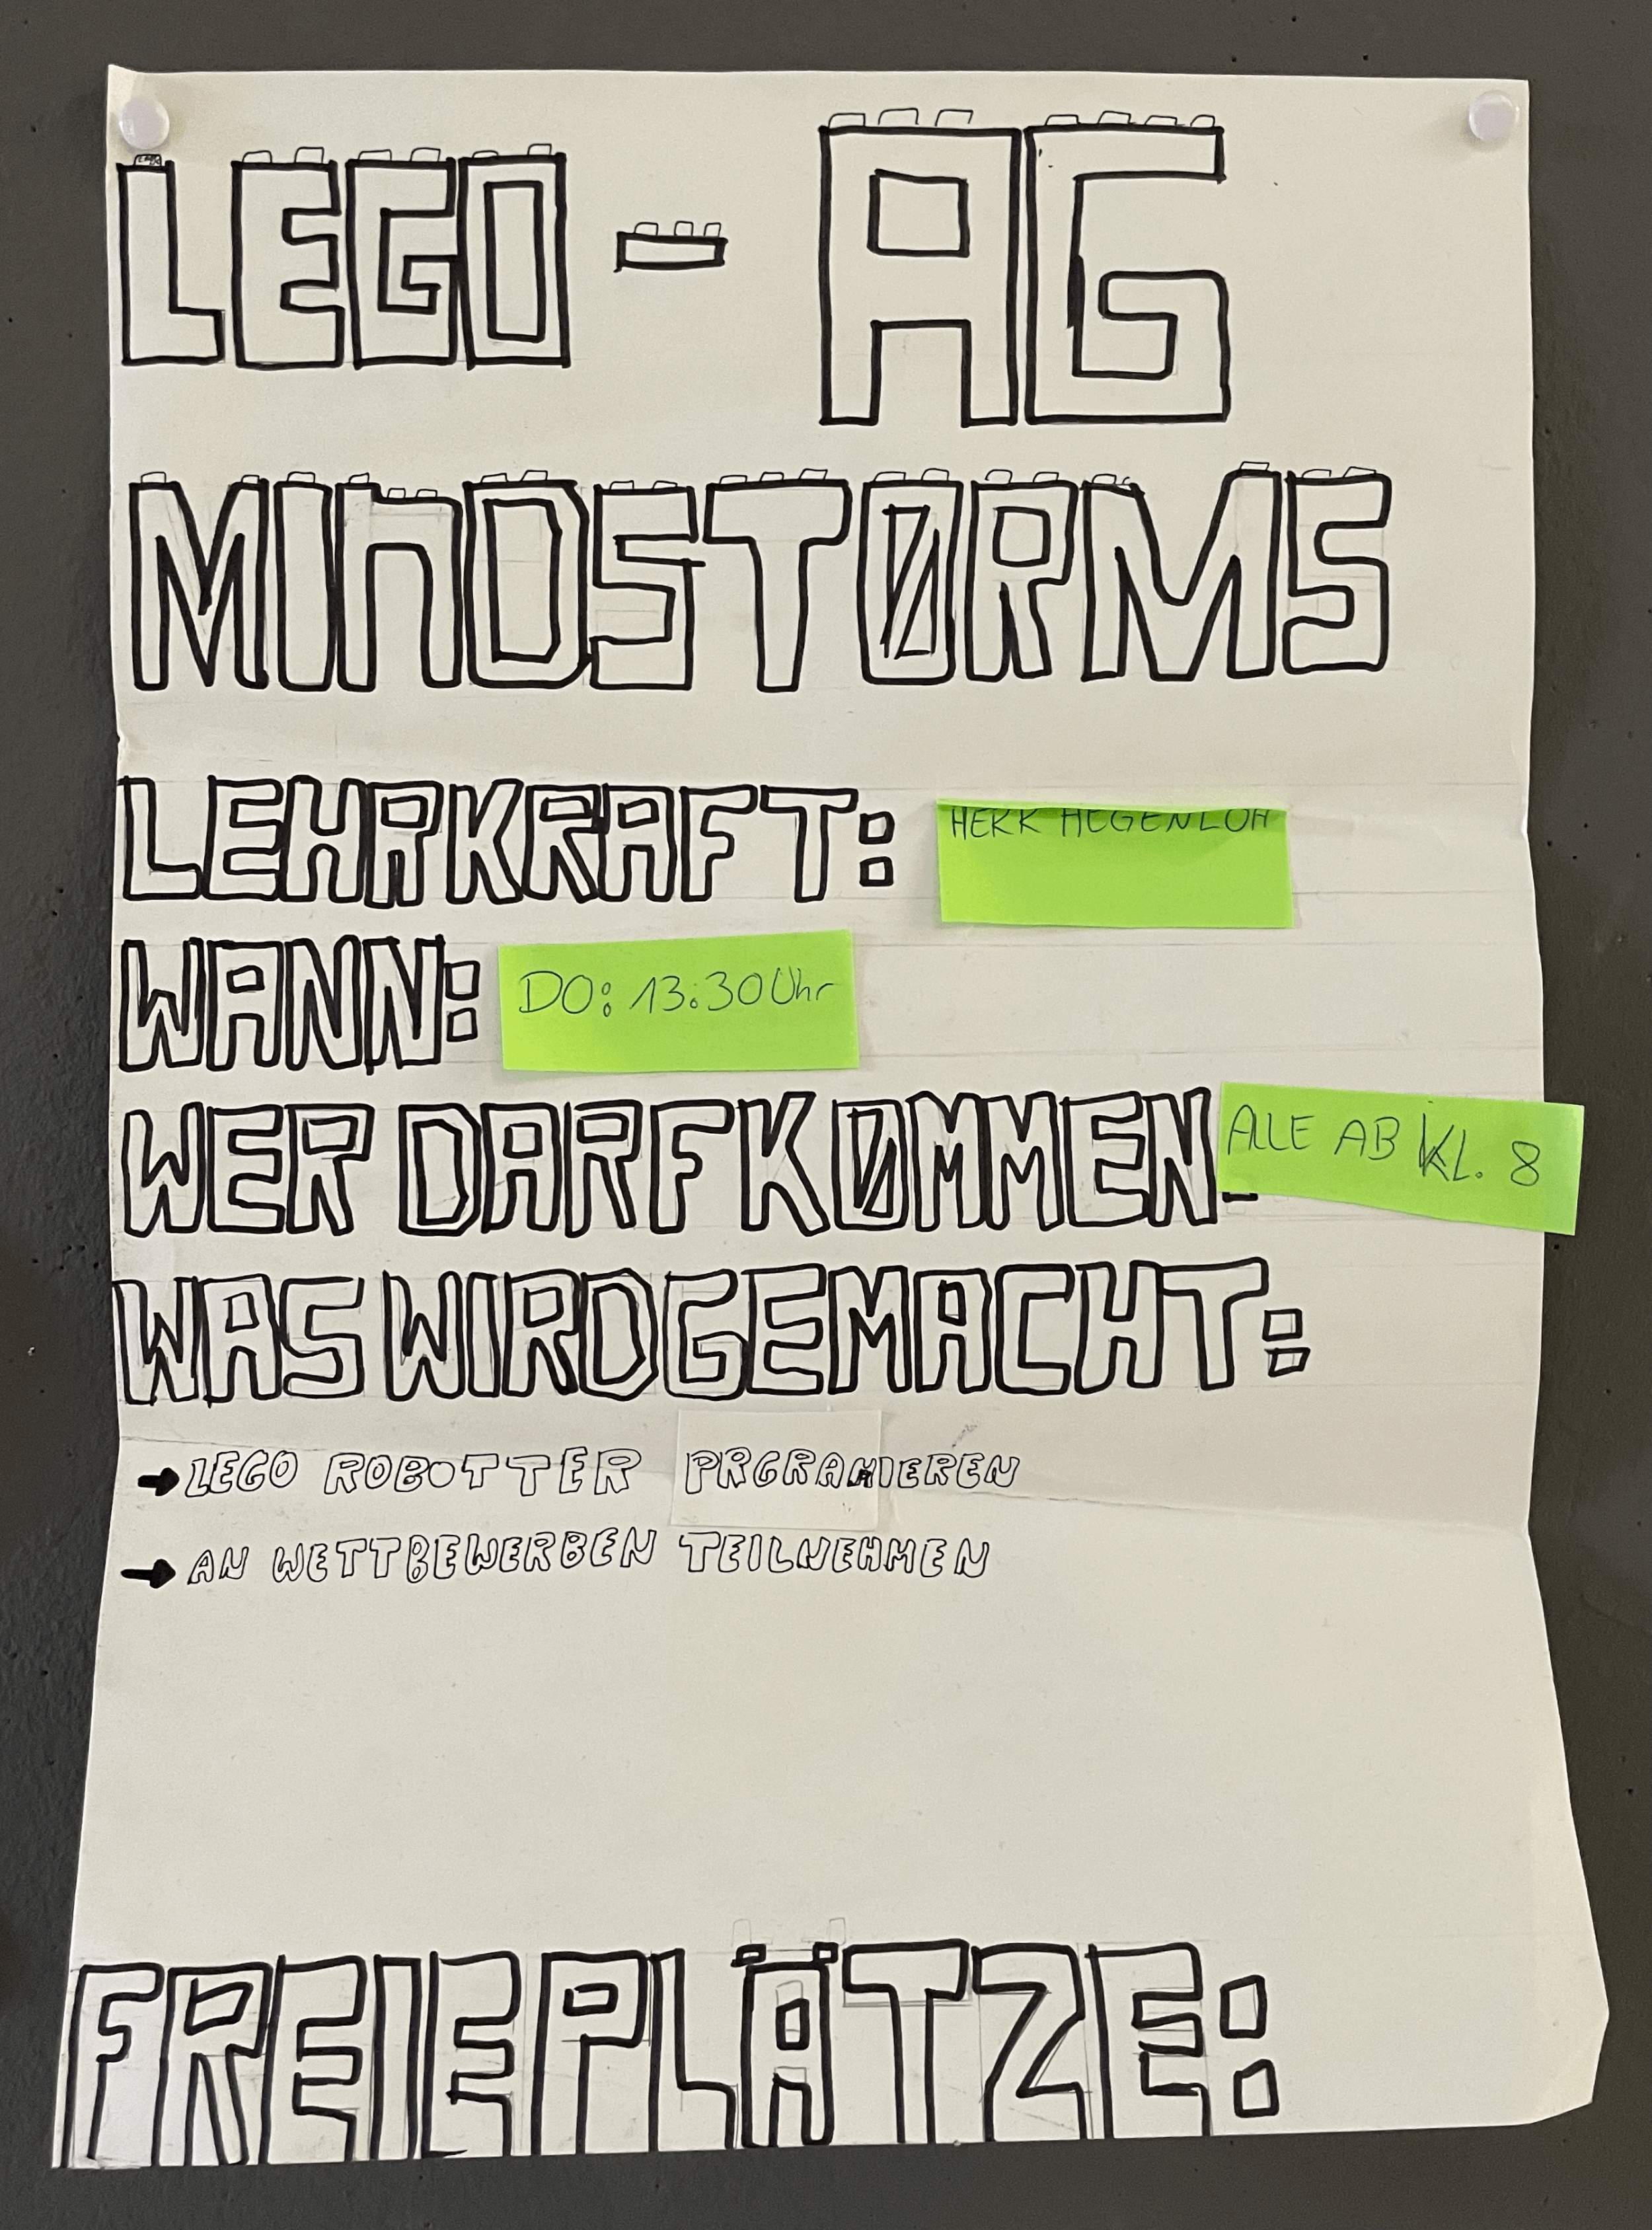 LEGO - AG
MINDSTØRMS
LEHRKRAFT: HERR HEGENLOH
WANN: DO: 13:30 Uhr
WER DARF KØMMEN: ALLE AB KL. 8
WAS WIRD GEMACHT:
→ LEGO ROBOTTER PRGRAMIEREN
→ AN WETTBEWERBEN TEILNEHMEN
FREIE PLÄTZE: